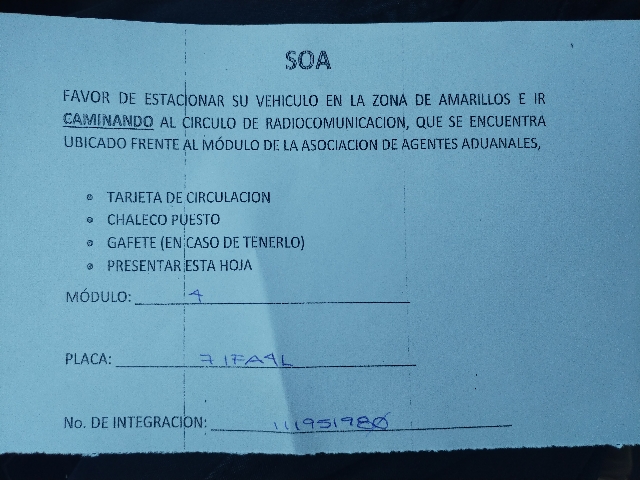 SOA
FAVOR DE ESTACIONAR SU VEHICULO EN LA ZONA DE AMARILLOS E IR
CAMINANDO AL CIRCULO DE RADIOCOMUNICACION, QUE SE ENCUENTRA
UBICADO FRENTE AL MÓDULO DE LA ASOCIACION DE AGENTES ADUANALES,
• TARJETA DE CIRCULACION
• CHALECO PUESTO
• GAFETE (EN CASO DE TENERLO)
• PRESENTAR ESTA HOJA
MÓDULO: 4
PLACA: 71FA4L
No. DE INTEGRACION: 111951980